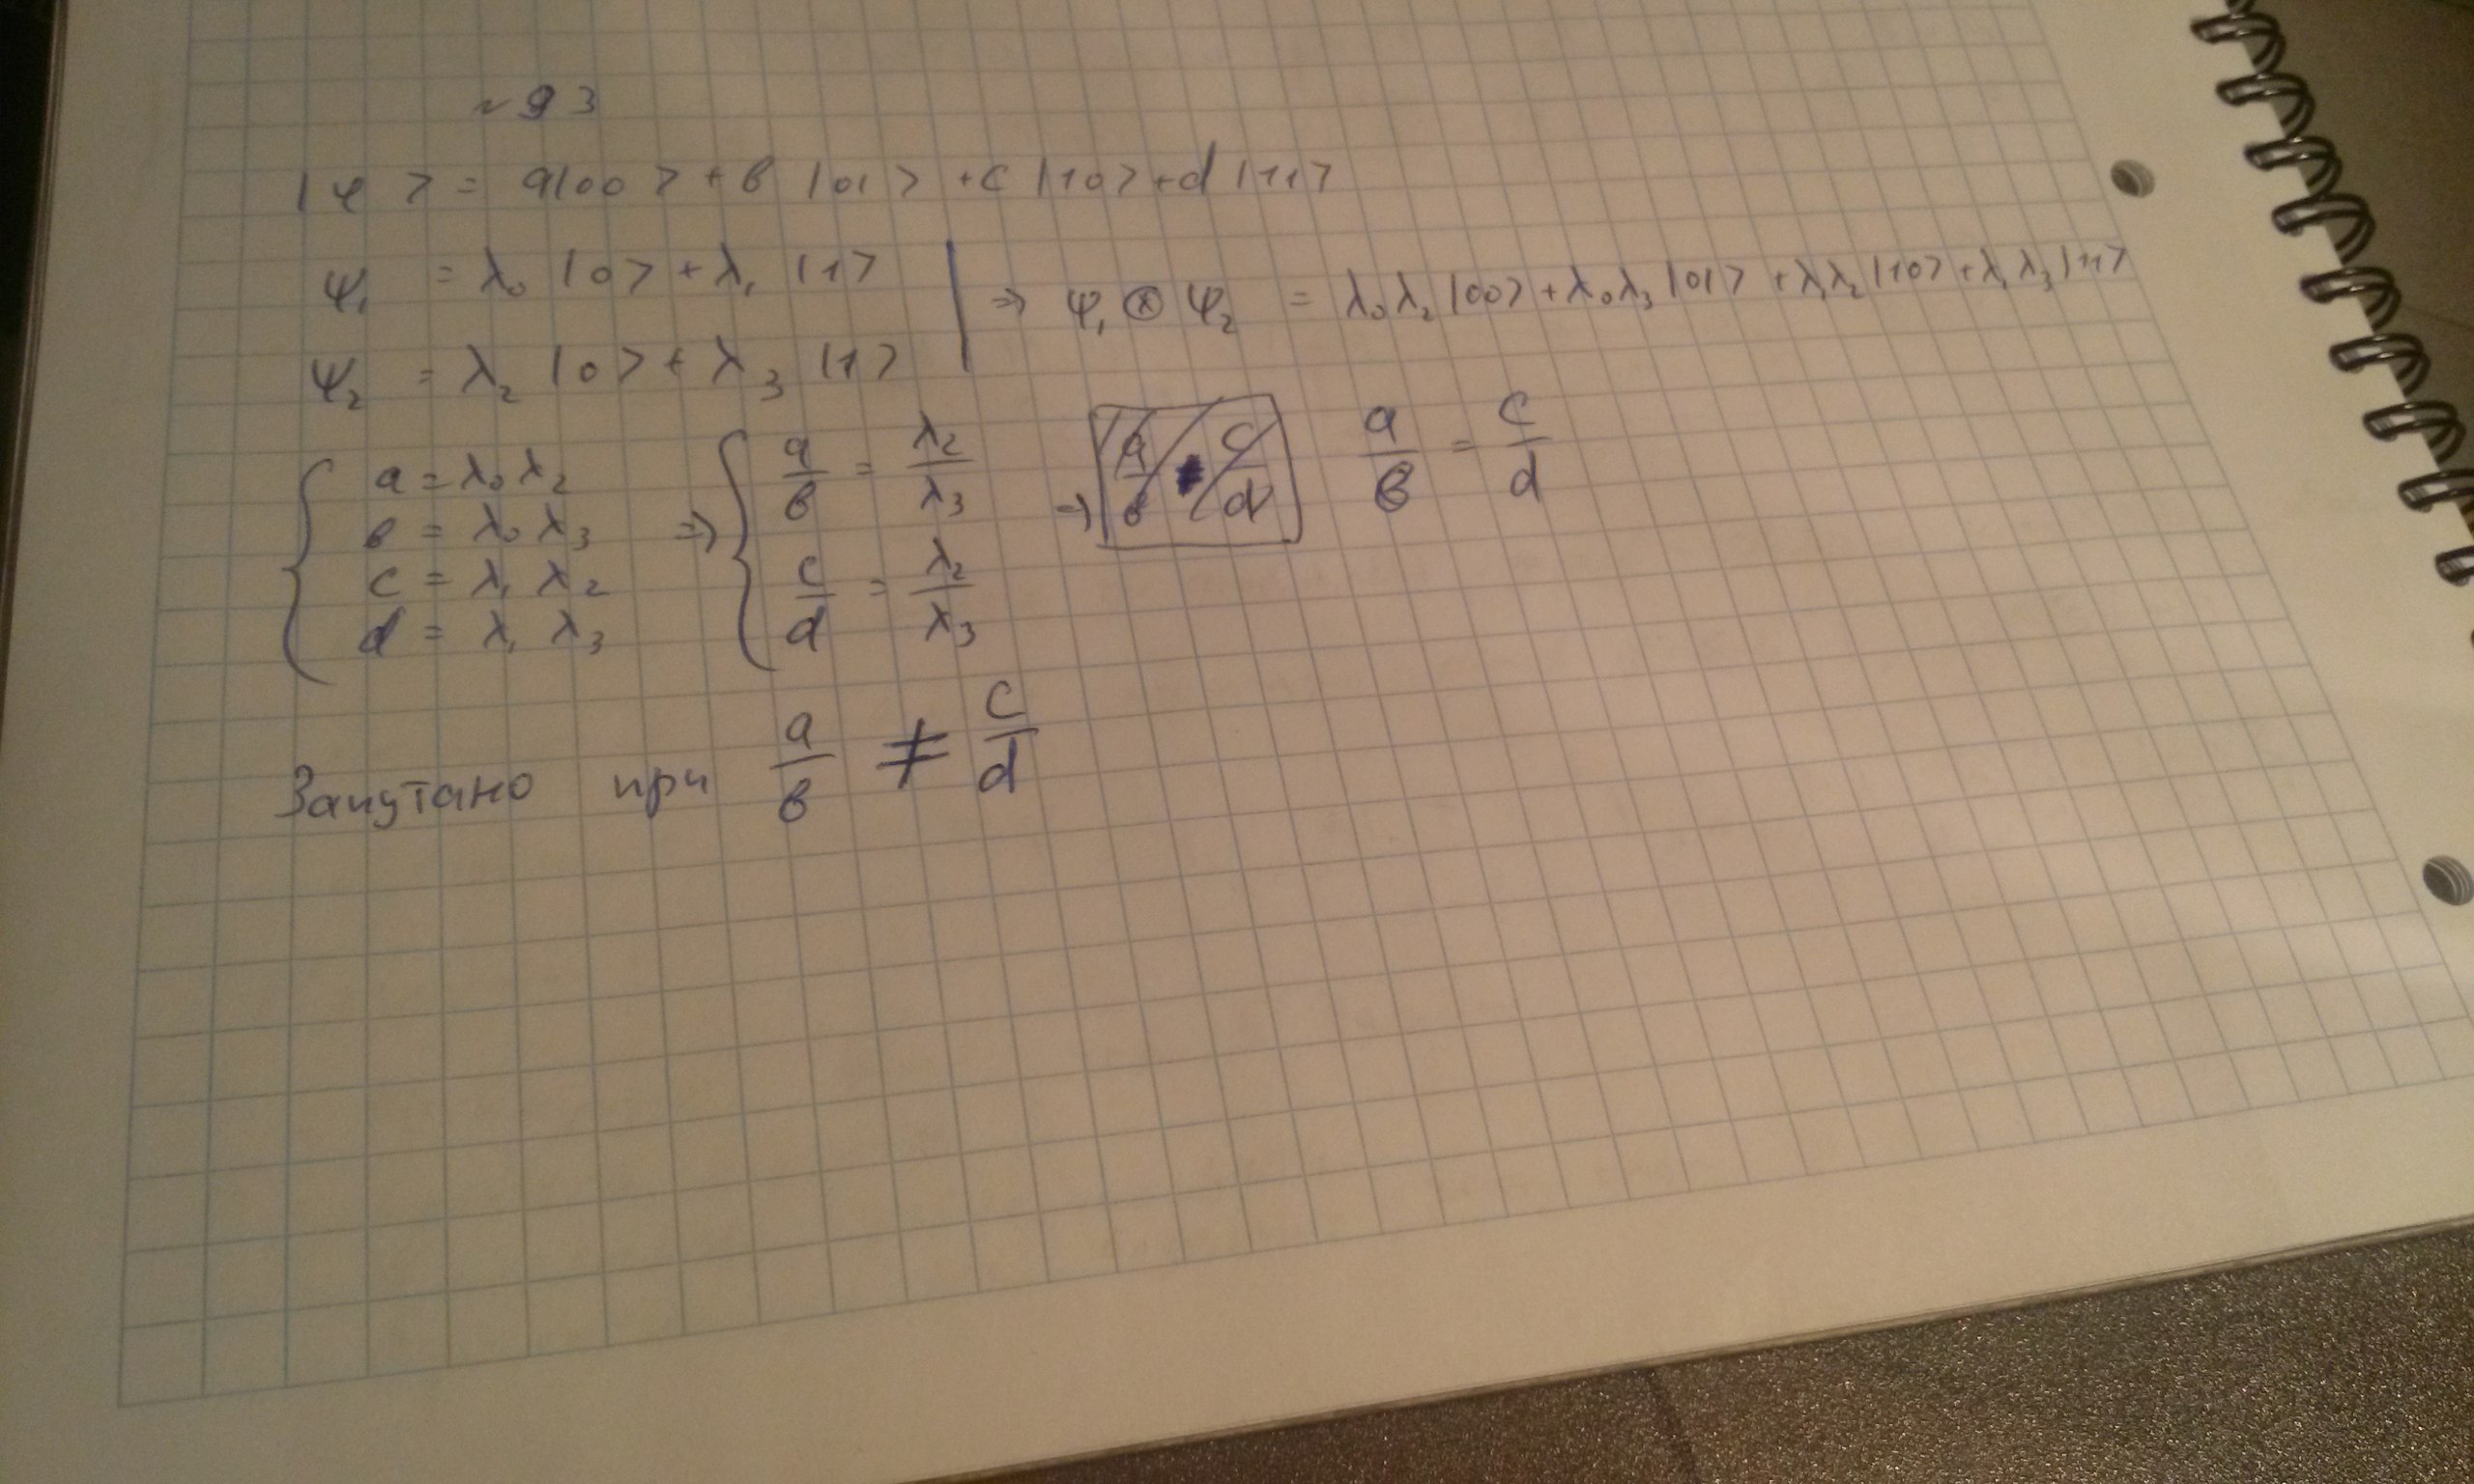 № 93
|φ> = a|00> + b|01> + c|10> + d|11>
ψ₁ = λ₀|0> + λ₁|1>
ψ₂ = λ₂|0> + λ₃|1>
⇒ ψ₁ ⊗ ψ₂ = λ₀λ₂|00> + λ₀λ₃|01> + λ₁λ₂|10> + λ₁λ₃|11>
a = λ₀ λ₂
b = λ₀ λ₃
c = λ₁ λ₂
d = λ₁ λ₃
⇒ a/b = λ₂/λ₃
c/d = λ₂/λ₃
⇒ a/b c/d a/b = c/d
Запутано при a/b ≠ c/d